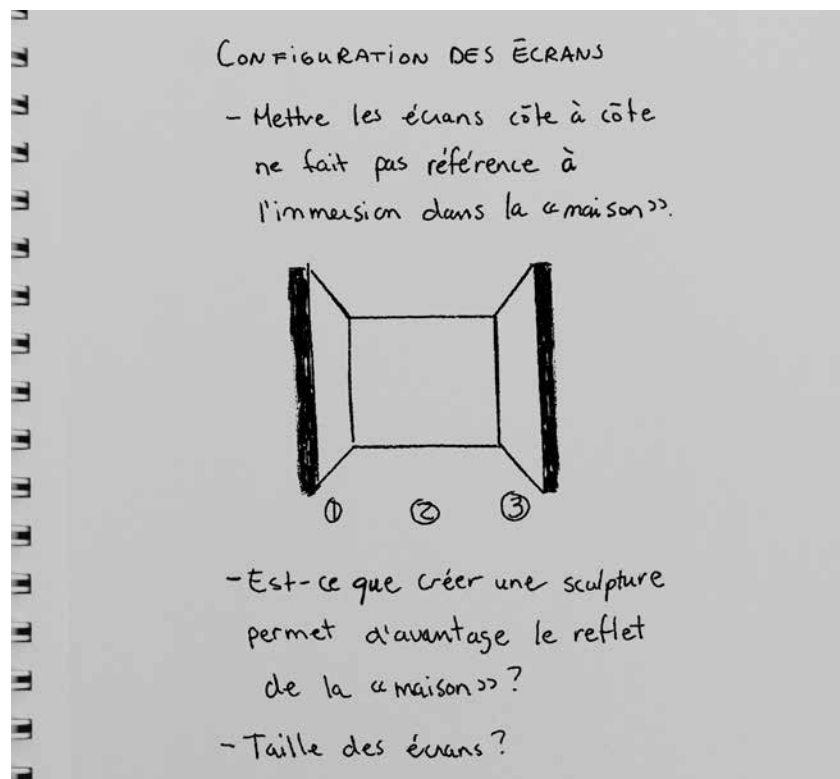 CONFIGURATION DES ÉCRANS
- Mettre les écrans côte à côte
ne fait pas référence à
l'immersion dans la «maison».
① ② ③
- Est-ce que créer une sculpture
permet d'avantage le reflet
de la «maison»?
- Taille des écrans?